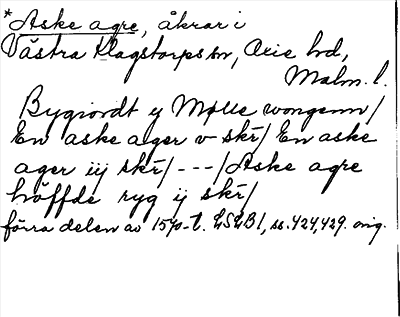 *Aske agre, åkrar i
Västra Klagstorps sn, Oxie hd,
Malm. l.
Bygiordt y Mølle wongenn/
En aske ager v skr/ En aske
ager iij skr/ - - -/ Aske agre
höffde ryg ij skr/
förra delen av 1570-t. LSLB1, ss. 424, 429. orig.